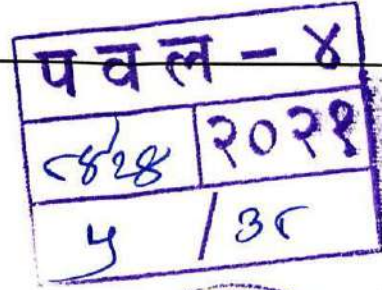 पवल - ४
८४२४ २०२१
५ / ३८